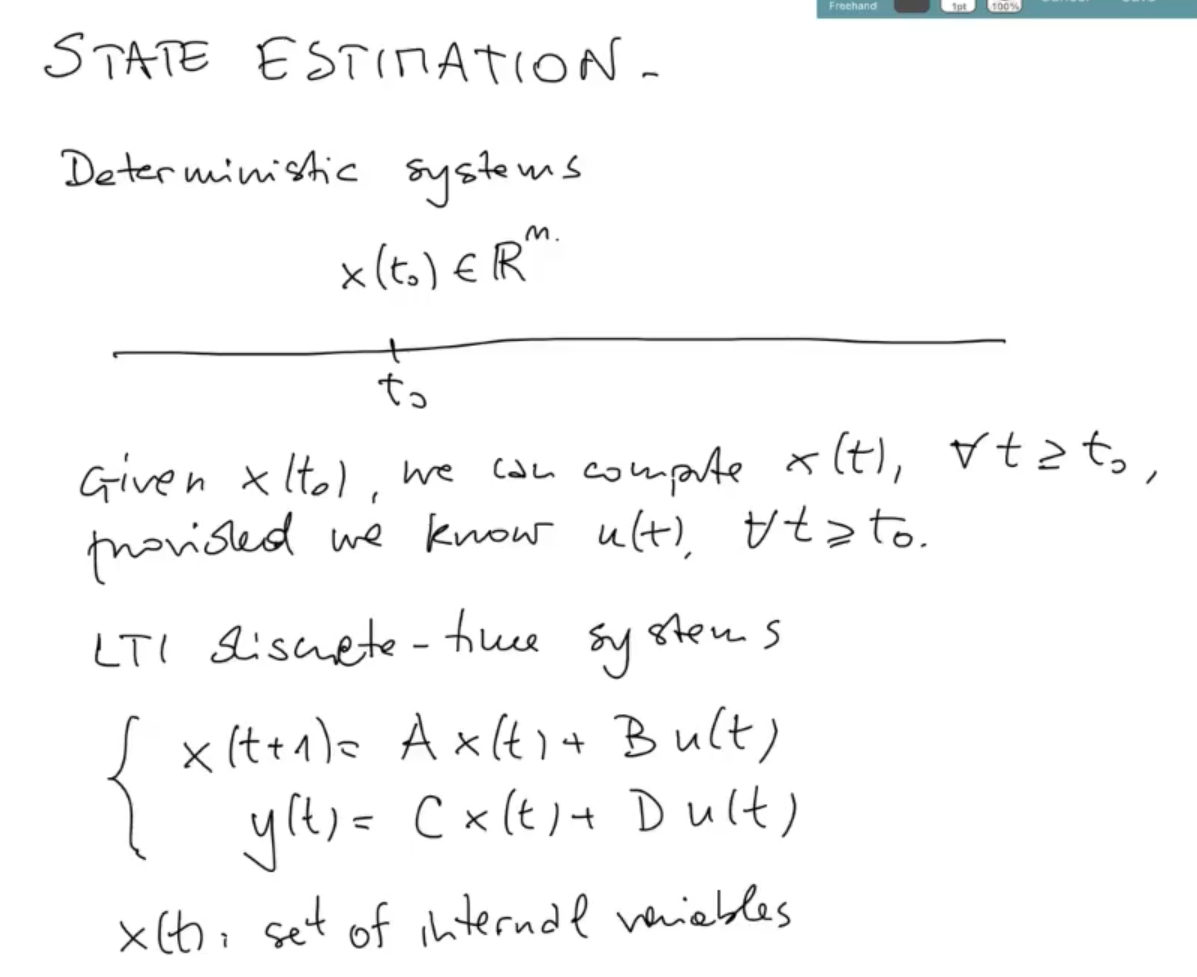 Freehand 1pt 100%
STATE ESTIMATION.
Deterministic systems
x(t₀) ∈ ℝⁿ.
t₀
Given x(t₀), we can compute x(t), ∀t ≥ t₀,
provided we know u(t), ∀t ≥ t₀.
LTI discrete-time systems
{ x(t+1) = A x(t) + B u(t)
y(t) = C x(t) + D u(t)
x(t): set of internal variables